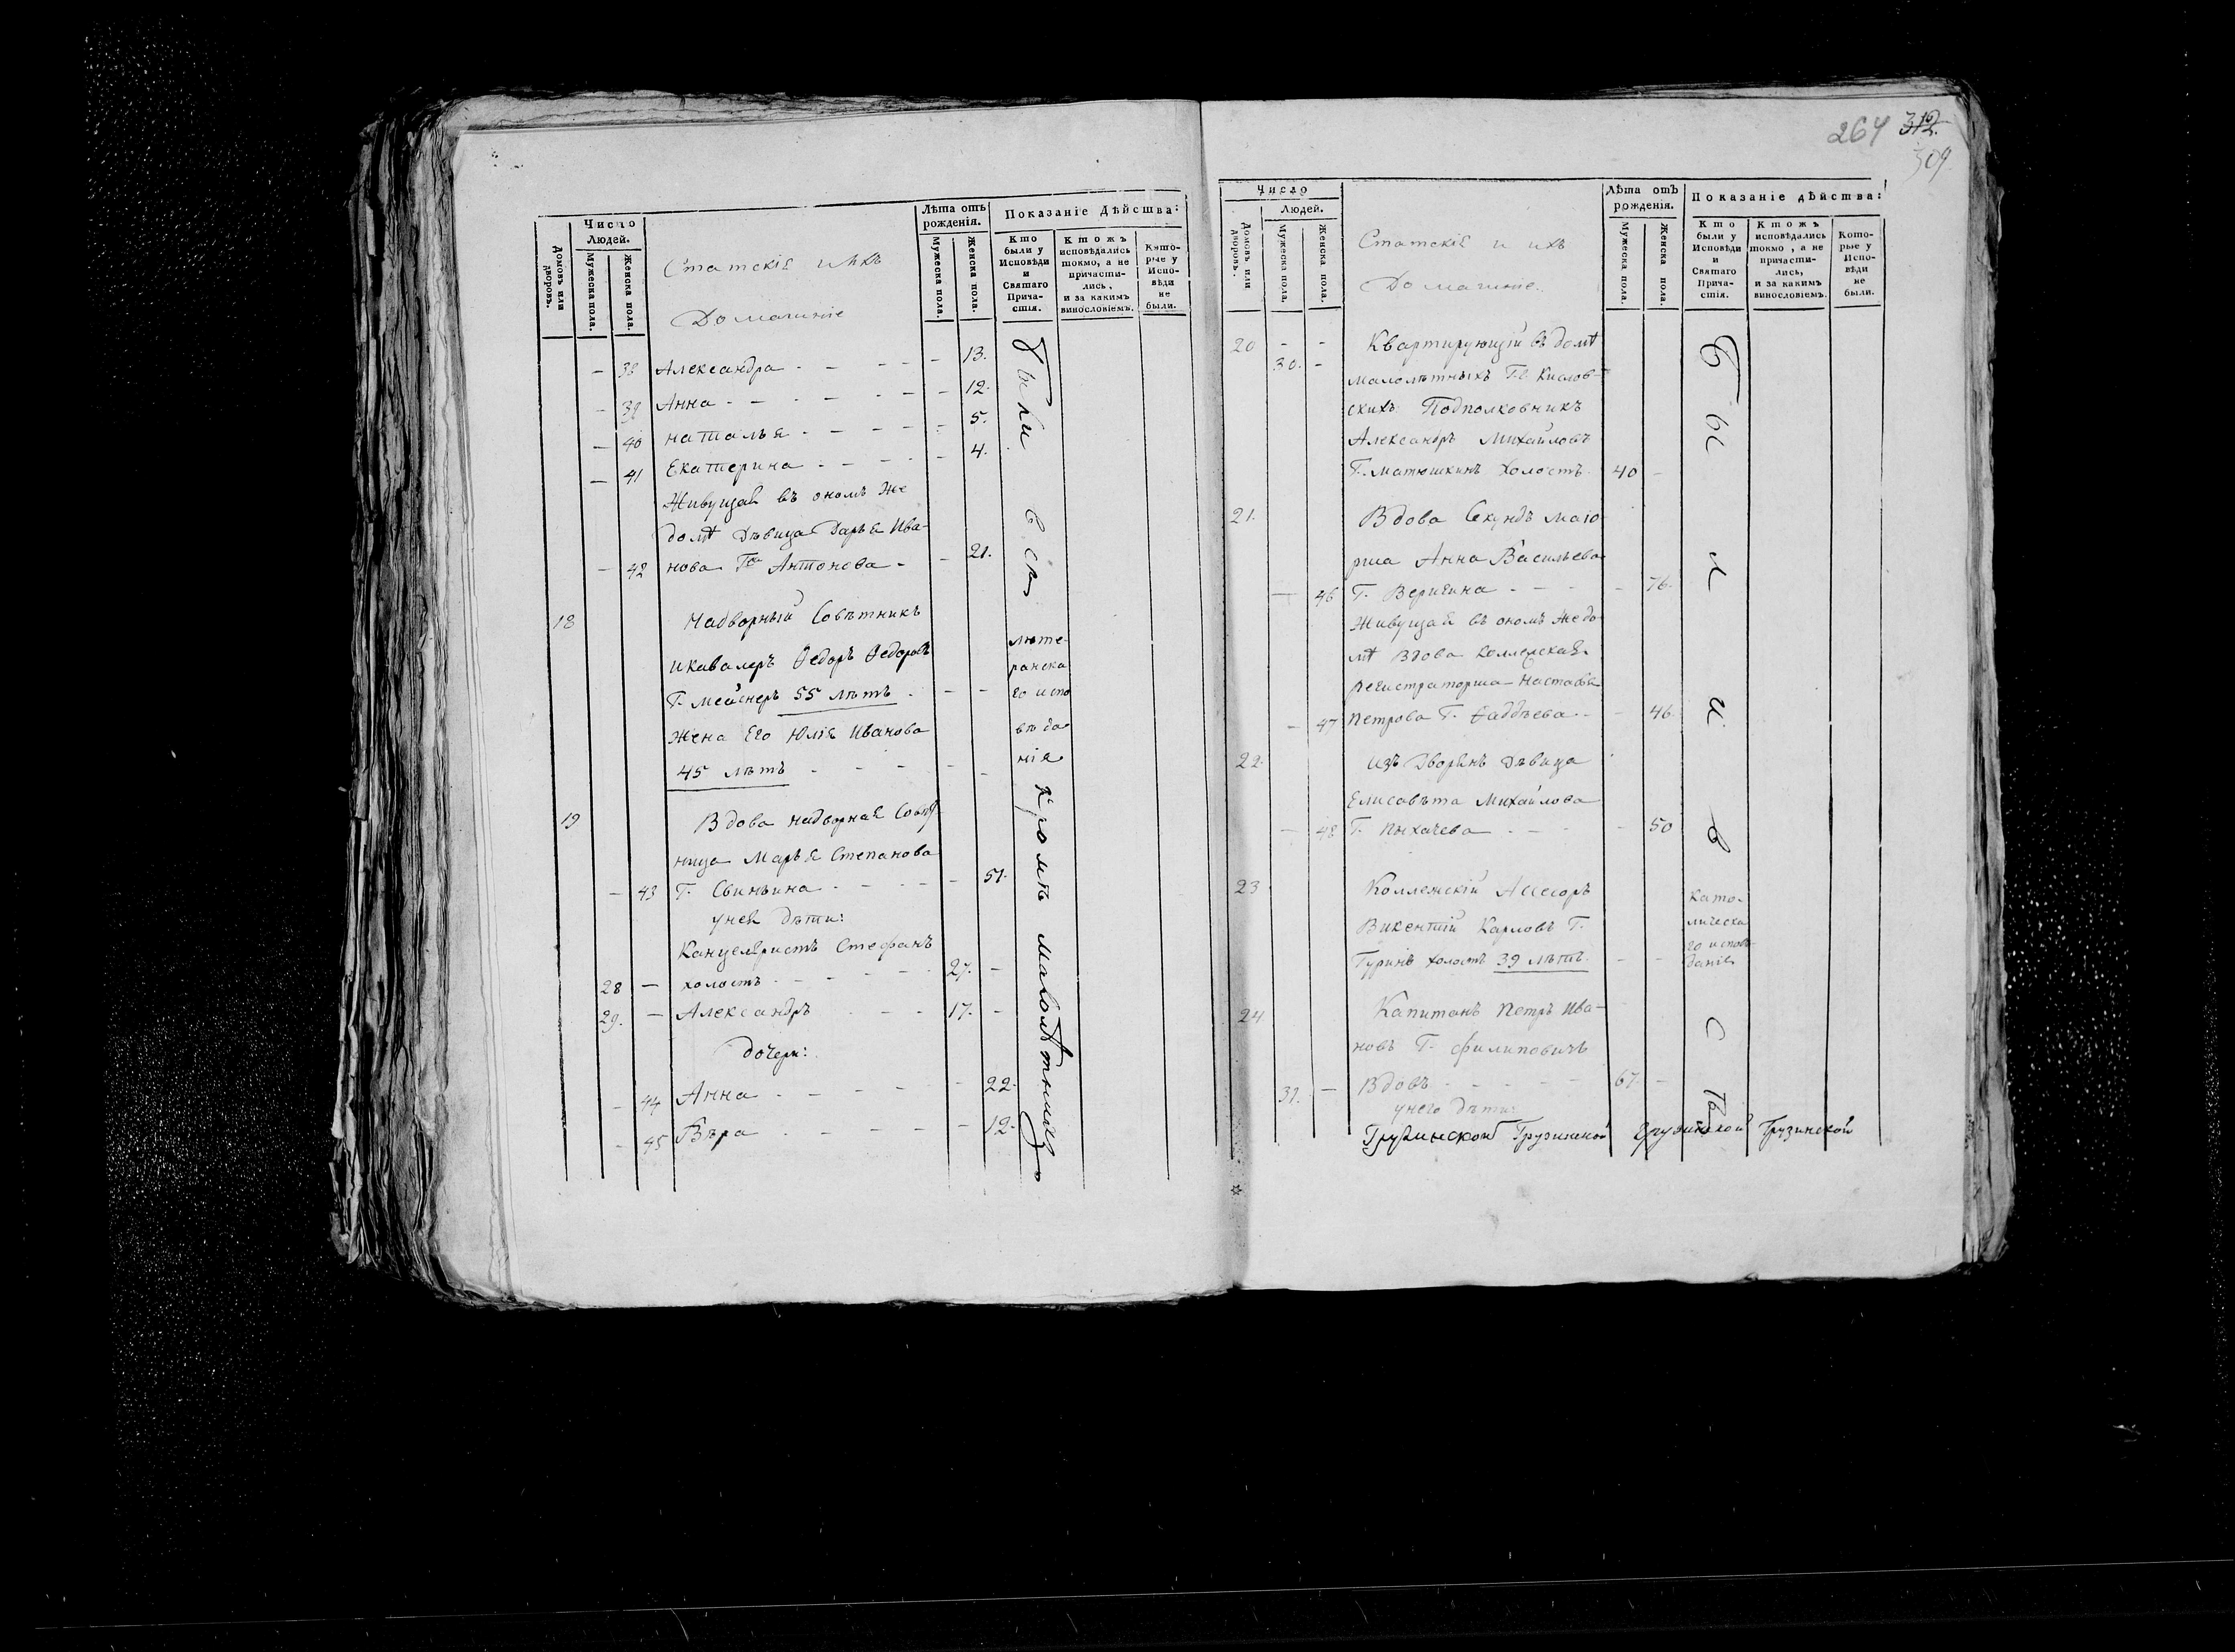 Число
Людей.
Домовъ или дворовъ.
Мужеска пола.
Женска пола.
Статскія и ихъ
Домашніе
Лѣта отъ рожденія.
Мужеска пола.
Женска пола.
Показаніе Дѣйства:
Кто были у Исповѣди и Святаго Причастія.
Кто жъ исповѣдались токмо, а не причастились, и за какимъ винословіемъ.
Которые у Исповѣди не были.
– 38 Александра – – – – 13.
– 39 Анна – – – – – 12.
– 40 Наталья – – – – – 5.
– 41 Екатерина – – – – 4.
Живущая въ ономъ же
домѣ Дѣвица Дарья Ива-
– 42 нова Гжа Антонова – – 21.
18 Надворный Совѣтникъ
и кавалеръ Ѳедоръ Ѳедоровъ
Г. Мейснеръ 55 лѣтъ – – –
Жена Его Юлія Иванова
45 лѣтъ – – – – –
люте-
ранска
го испо
вѣда
нія
19 Вдова надворная Совѣт
ница Марья Степанова
– 43 Г. Свиньина – – – – 51.
у нея дѣти:
Канцеляристъ Стефанъ
28 – холостъ – – – 27. –
29. – Александръ – – – 17. –
дочери:
– 44 Анна – – – – – 22.
– 45 Вѣра – – – – – 12.
были
всѣ
кромѣ малолѣтныхъ
264 312.
309
Число
Людей.
Домовъ или дворовъ.
Мужеска пола.
Женска пола.
Статскія и ихъ
Домашніе.
Лѣта отъ рожденія.
Мужеска пола.
Женска пола.
Показаніе дѣйства:
Кто были у Исповѣди и Святаго Причастія.
Кто жъ исповѣдались токмо, а не причастились, и за какимъ винословіемъ.
Которые у Исповѣди не были.
20 – – Квартирующій въ домѣ
30. – малолѣтныхъ Г.д Кислов-
скихъ Подполковникъ
Александръ Михайловъ
Г. Матюшкинъ холостъ. 40 –
21. Вдова Секундъ Маіо
рша Анна Васильева
– 46 Г. Веригина – – – – 76.
Живущая въ ономъ же до
мѣ вдова коллежская
регистраторша Настасья
– 47 Петрова Г. Ѳаддѣева – – 46.
22. Изъ Дворянъ Дѣвица
Елисавѣта Михайлова
– 48 Г. Пыхачева – – – – 50
23 Коллежскій Ассесоръ
Викентій Карловъ Г.
Туринъ холостъ 39 лѣтъ. – –
Като-
лическа
го исповѣ-
данія
24 Капитанъ Петръ Ива-
новъ Г. Филиповичъ
31. – Вдовъ – – – – – 67. –
у него дѣти:
Были всѣ
Грузинской Грузинской Грузинской Грузинской